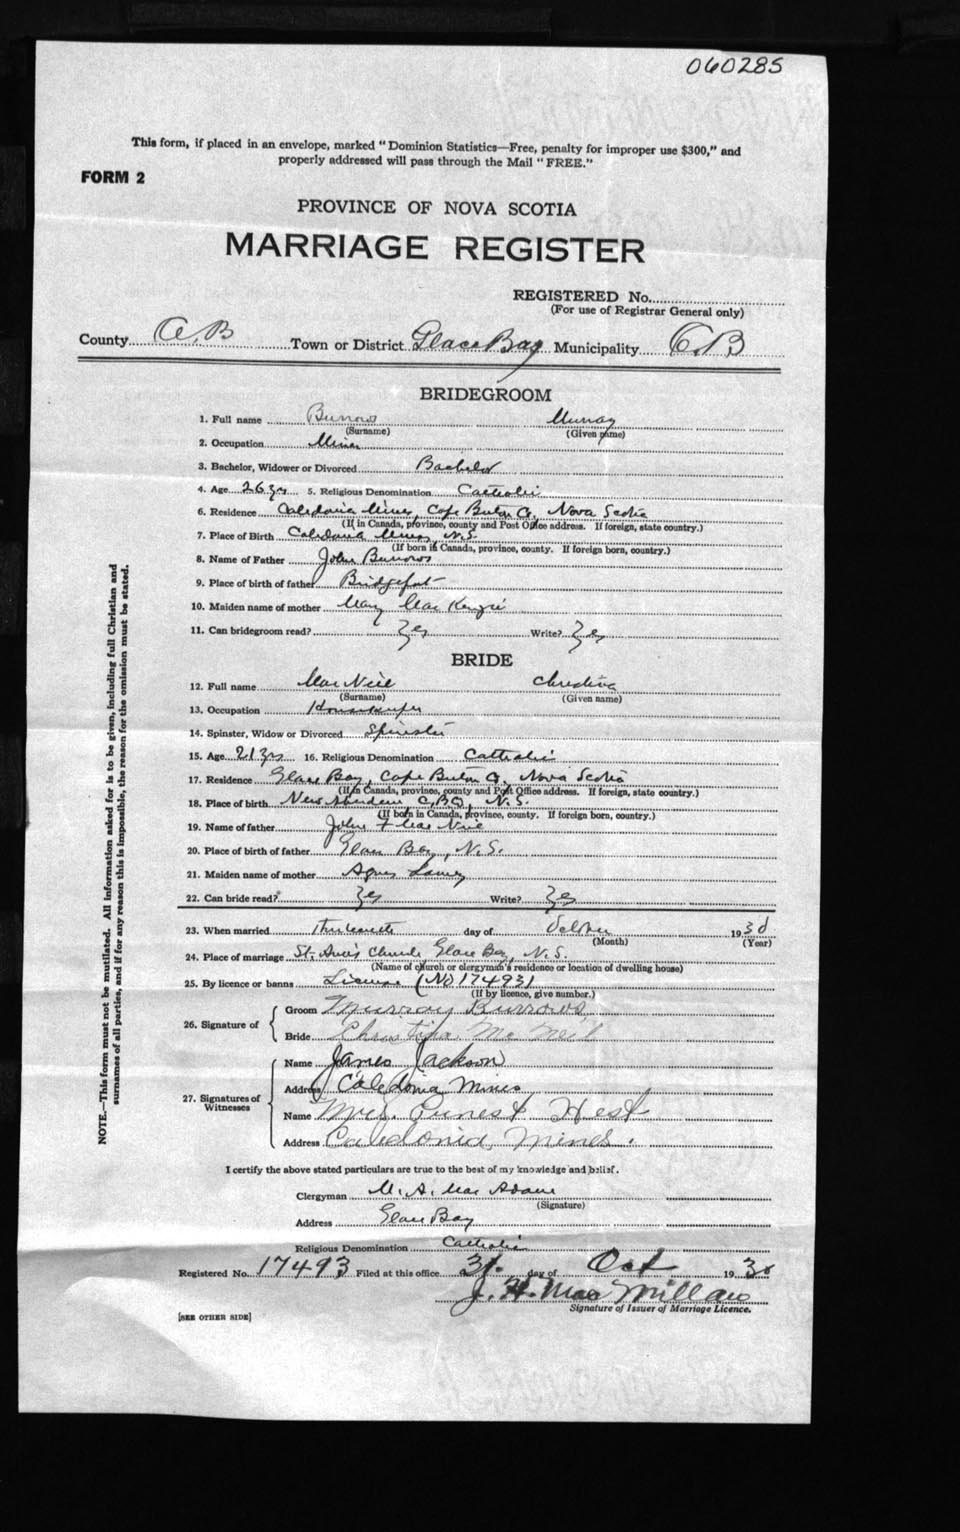 060285
This form, if placed in an envelope, marked "Dominion Statistics—Free, penalty for improper use $300," and
properly addressed will pass through the Mail "FREE."
FORM 2
PROVINCE OF NOVA SCOTIA
MARRIAGE REGISTER
REGISTERED No.
(For use of Registrar General only)
County C.B Town or District Glace Bay Municipality C.B
BRIDEGROOM
1. Full name Burrows Murray
(Surname) (Given name)
2. Occupation Miner
3. Bachelor, Widower or Divorced Bachelor
4. Age 26 yrs 5. Religious Denomination Catholic
6. Residence Caledonia Mines, Cape Breton Co, Nova Scotia
(If in Canada, province, county and Post Office address. If foreign, state country.)
7. Place of Birth Caledonia Mines, N.S.
(If born in Canada, province, county. If foreign born, country.)
8. Name of Father John Burrows
9. Place of birth of father Bridgeport
10. Maiden name of mother Mary MacKenzie
11. Can bridegroom read? Yes Write? Yes
BRIDE
12. Full name MacNeil Christina
(Surname) (Given name)
13. Occupation Housekeeper
14. Spinster, Widow or Divorced Spinster
15. Age 21 yrs 16. Religious Denomination Catholic
17. Residence Glace Bay, Cape Breton Co, Nova Scotia
(If in Canada, province, county and Post Office address. If foreign, state country.)
18. Place of birth New Aberdeen C.B., N.S.
(If born in Canada, province, county. If foreign born, country.)
19. Name of father John F MacNeil
20. Place of birth of father Glace Bay, N.S.
21. Maiden name of mother Agnes
22. Can bride read? Yes Write? Yes
23. When married Thirteenth day of October 1930
(Month) (Year)
24. Place of marriage St. Ann's Church, Glace Bay, N.S.
(Name of church or clergyman's residence or location of dwelling house)
25. By licence or banns License (No 17493)
(If by licence, give number.)
26. Signature of Groom Murray Burrows
Bride Christina Mc Neil
27. Signatures of Witnesses Name James Jackson
Address Caledonia Mines
Name Mrs. Ernest Hest
Address Caledonia Mines.
I certify the above stated particulars are true to the best of my knowledge and belief.
Clergyman M. A. MacAdam
(Signature)
Address Glace Bay
Religious Denomination Catholic
Registered No. 17493 Filed at this office 31. day of Oct 1930
J. H. MacMillan
Signature of Issuer of Marriage Licence.
[SEE OTHER SIDE]
NOTE.—This form must not be mutilated. All information asked for is to be given, including full Christian and
surnames of all parties, and if for any reason this is impossible, the reason for the omission must be stated.